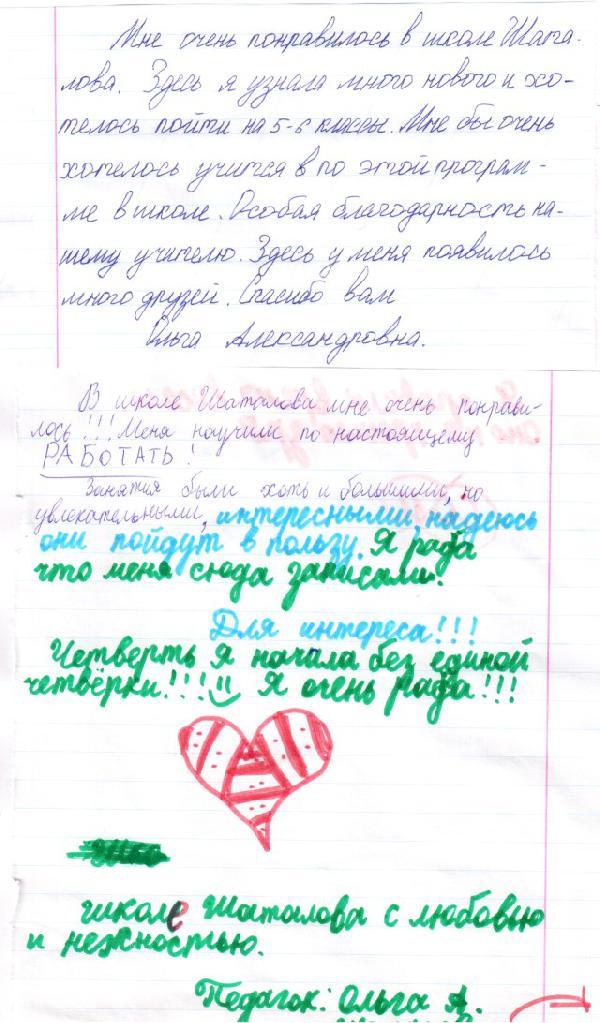 Мне очень понравилось в школе Шата-
лова. Здесь я узнала много нового и хо-
телось пойти на 5-6 классы. Мне бы очень
хотелось учится в по этой програм-
ме в школе. Особая благодарность на-
шему учителю. Здесь у меня появилось
много друзей. Спасибо вам
Ольга Александровна.
В школе Шаталова мне очень понрави-
лось!!! Меня научили по настоящему
РАБОТАТЬ!
Занятия были хоть и большими, но
увлекательными, интересными, надеюсь
они пойдут в пользу. Я рада
что меня сюда записали!
Для интереса!!!
Четверть я начала без единой
четвёрки!!! Я очень рада!!!
школе Шаталова с любовью
и нежностью.
Педагок: Ольга А.